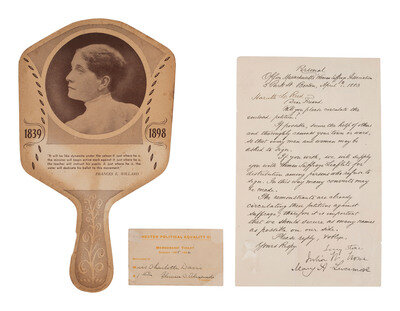 1839
1898
"It will be like dynamite under the saloon if just where he is,
the minister will begin active work against it; just where he is,
the teacher will instruct his pupils; if, just where he is, the
voter will dedicate his ballot to this movement."
FRANCES E. WILLARD
POLITICAL EQUALITY
MEMBERSHIP TICKET
Miss Charlotte Davis
Personal
Office, Massachusetts Woman Suffrage Association
5 Park St. Boston, April 1883
Harriette H. Reed
Dear Friend
Will you please circulate the
enclosed petition?
If possible, secure the help of others
and thoroughly canvass your town or ward,
so that every man and woman may be
asked to sign.
If you wish, we will supply
you with Woman Suffrage Leaflets for
distribution among persons who refuse to
sign. In this way many converts may
be made.
The remonstrants are already
circulating their petitions against
suffrage & therefore it is important
that we should secure as many names
as possible on our side.
Please reply,
Yours truly